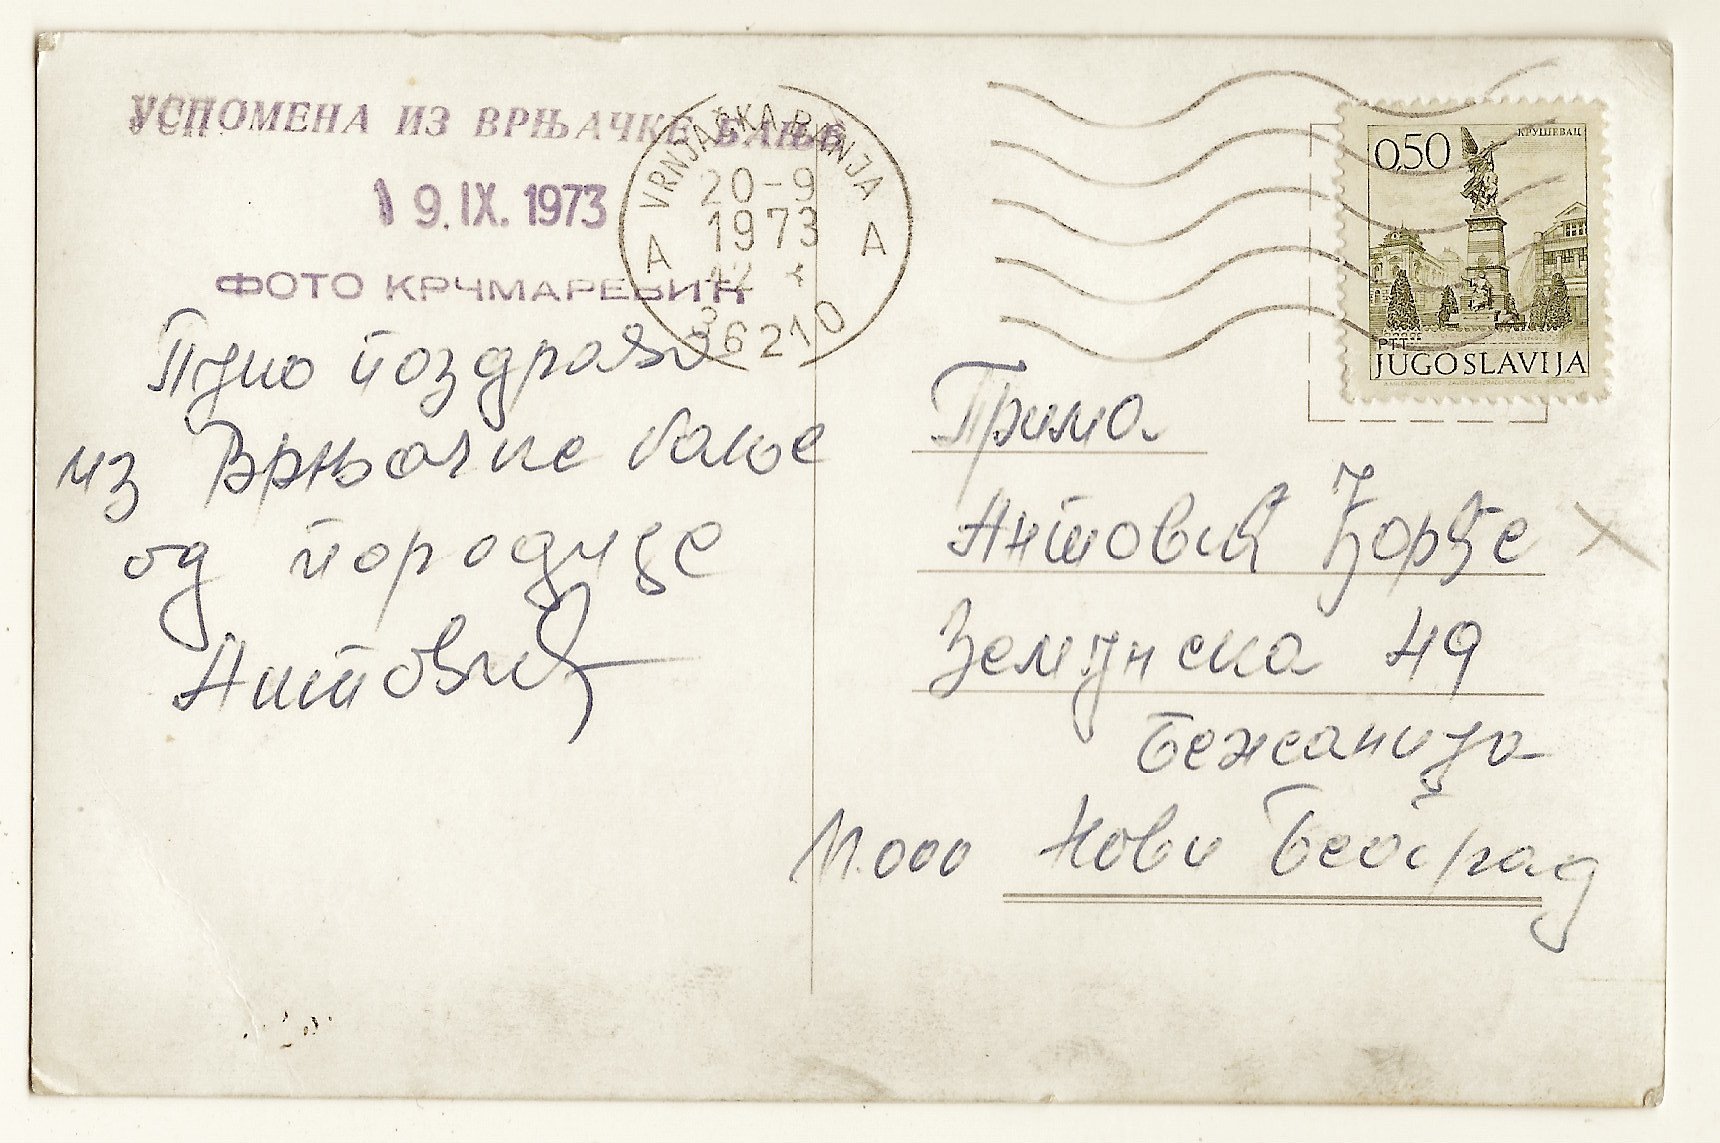 УСПОМЕНА ИЗ ВРЊАЧКЕ БАЊЕ
19. IX. 1973
ФОТО КРЧМАРЕВИЋ
VRNJAČKA BANJA
20-9
1973
12
A A
36210
Пуно поздрава
из Врњачке бање
од породице
Антовић
КРУШЕВАЦ
0,50
PTT
JUGOSLAVIJA
Прима
Антовић Ђорђе
Земунска 49
Бежанија
11.000 Нови Београд